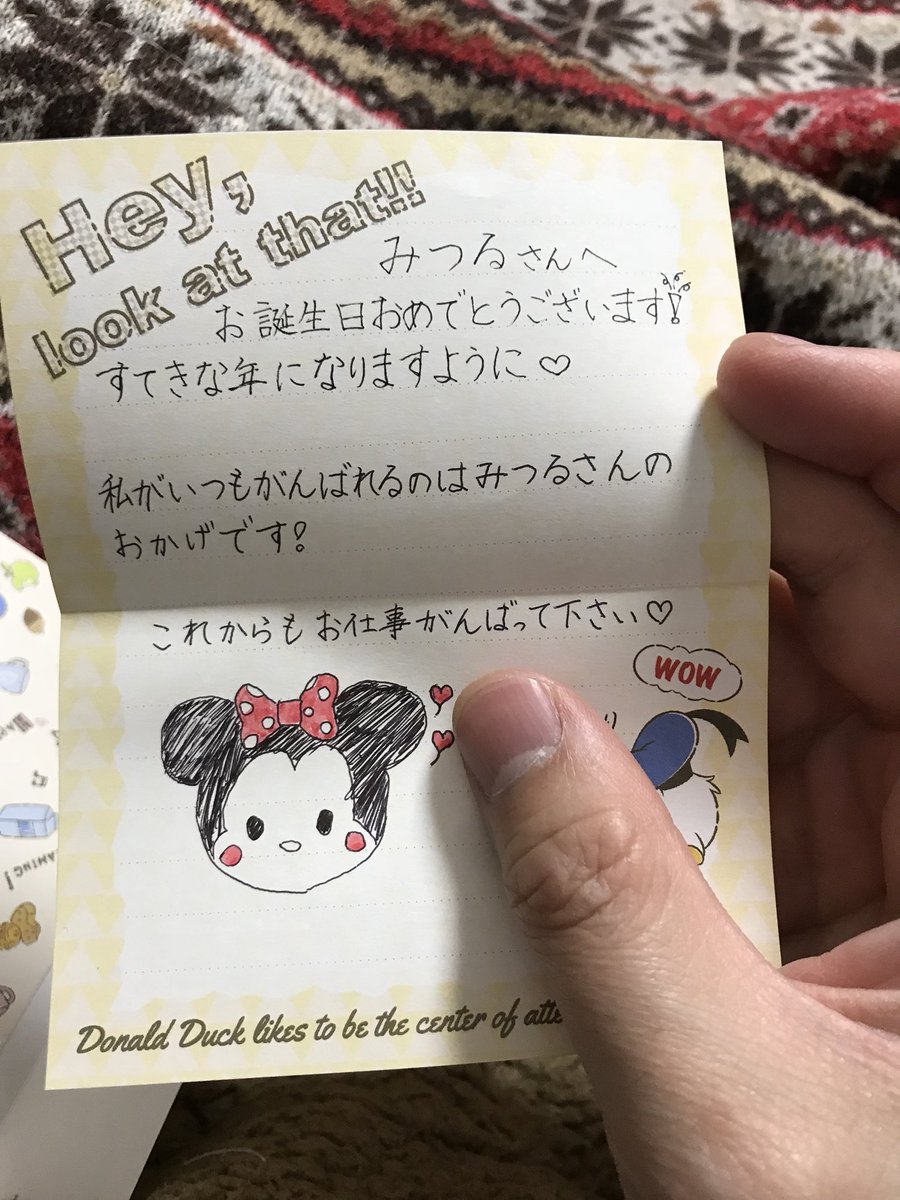 Hey,
look at that!!
みつるさんへ
お誕生日おめでとうございます!
すてきな年になりますように♡
私がいつもがんばれるのはみつるさんの
おかげです!
これからもお仕事がんばって下さい♡
WOW
Donald Duck likes to be the center of